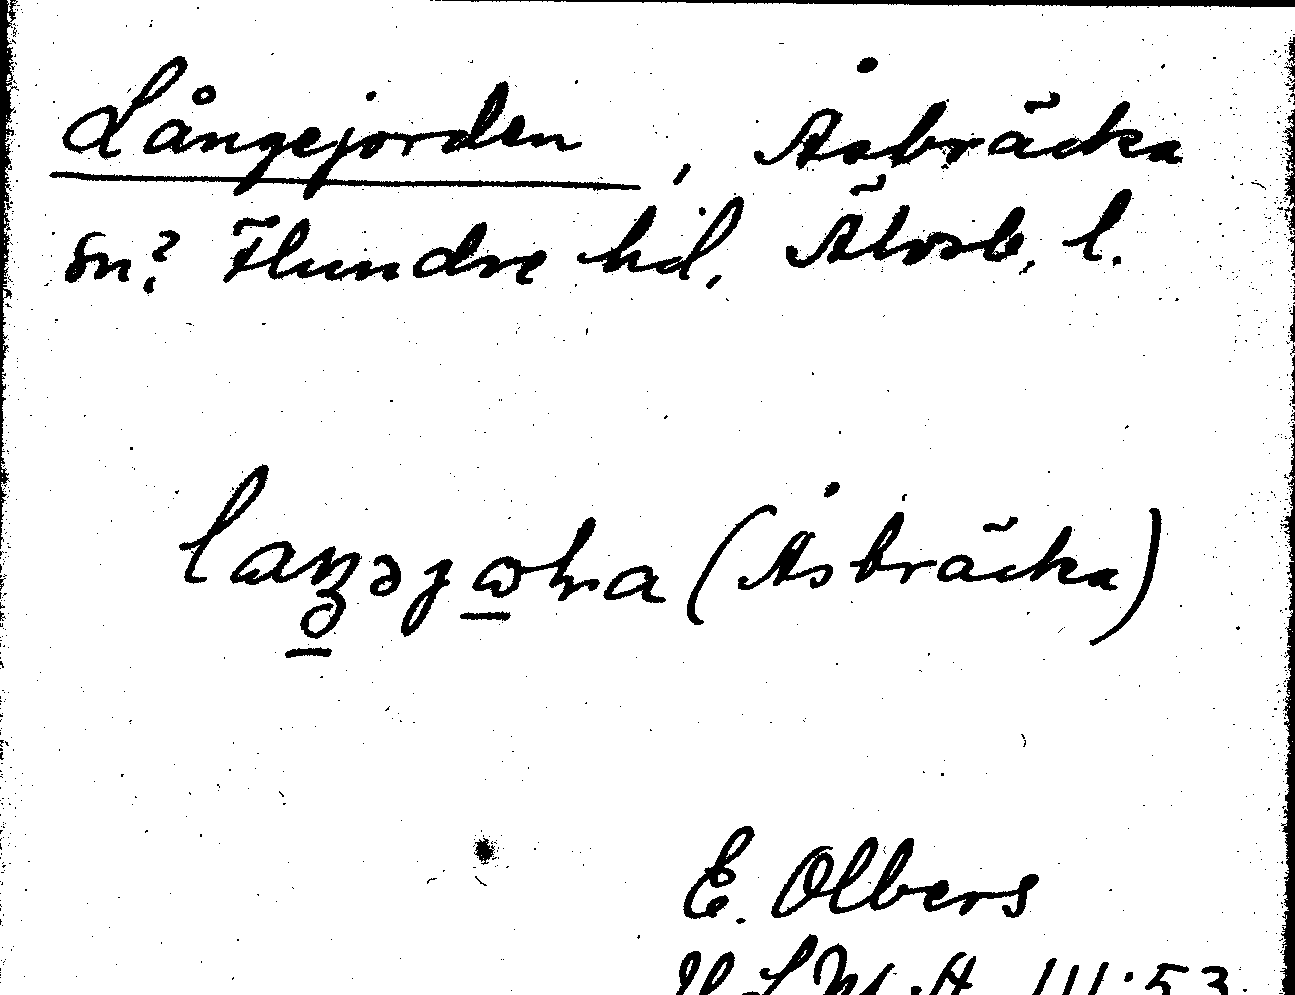 Långejorden, Åsbräcka
sn? Flundre hd, Älvsb, l.
(Åsbräcka)
E. Olbers
III:53